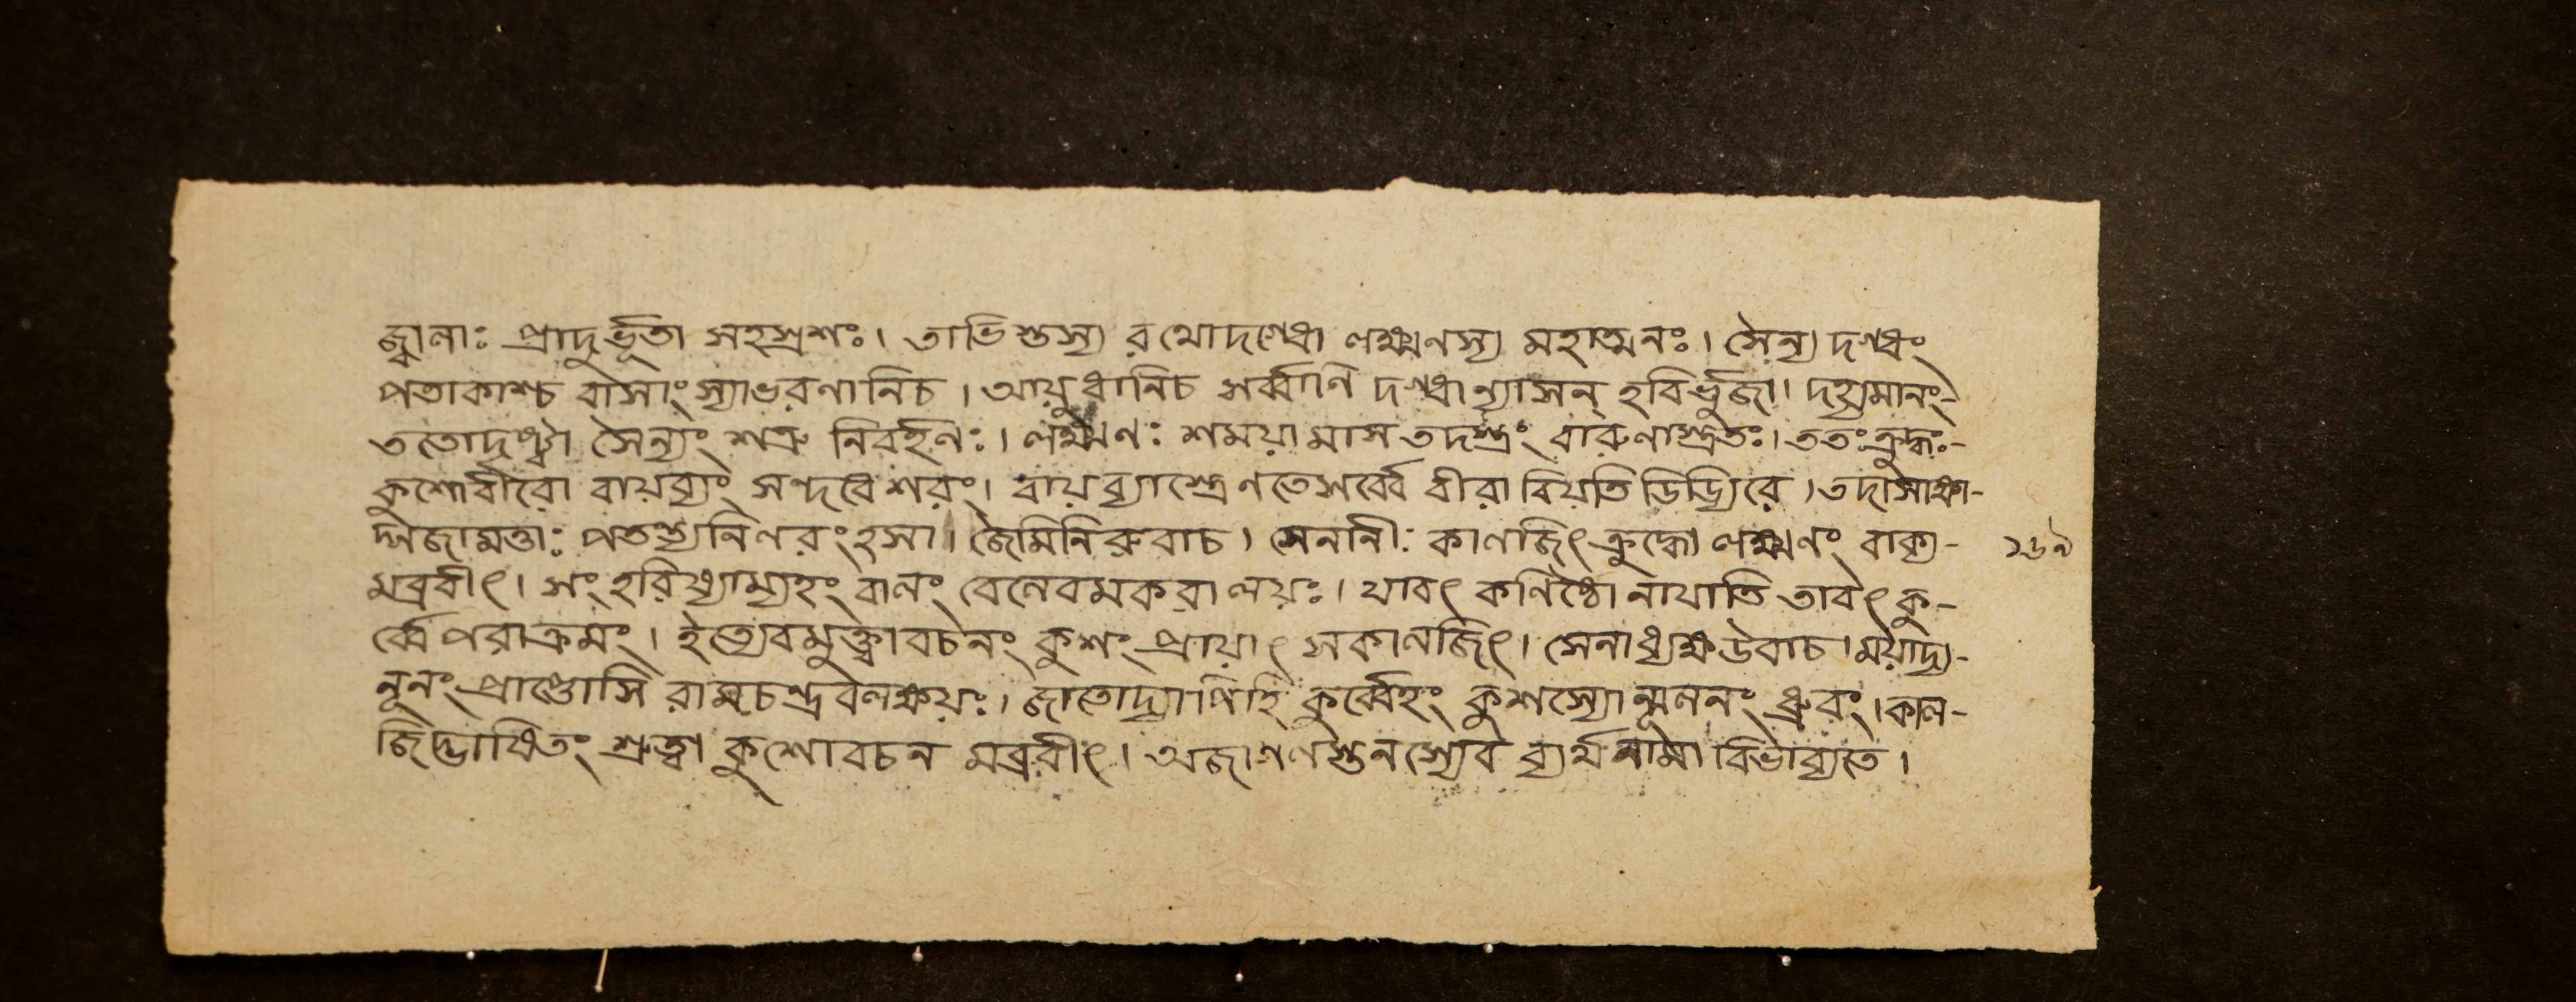 জ্বালাঃ প্রাদুর্ভূতা সহস্রশঃ। তাভিস্তস্য রথোদগ্ধো লক্ষ্মণস্য মহাত্মনঃ। সৈন্য দগ্ধং
পতাকাশ্চ বাসাংস্যাভরণানিচ। আয়ুধানিচ সর্ব্বাণি দগ্ধান্যাসন্ হবির্ভুজা। দহ্যমানং-
ততোদৃষ্ট্বা সৈন্যং শত্রু নিবর্হনঃ। লক্ষ্মণঃ শময়ামাস তদস্ত্রং বারুণাস্ত্রতঃ। ততঃ ক্রুদ্ধঃ-
কুশোবীরো বায়ব্যং সন্দধে শরং। বায়ব্যাস্ত্রেণতেসর্ব্বে বীরা বিয়তি ডিড্যিরে। তদাসাঙ্গা-
দ্গজামত্তাঃ পতন্ত্যনিলরংহসা। জৈমিনিরুবাচ। সেনানীঃ কালজিৎ ক্রুদ্ধো লক্ষ্মণং বাক্য- ১৬৯
মব্রবীৎ। সংহরিষ্যাম্যহং বালং বেলেবমকরালয়ঃ। যাবৎ কণিষ্ঠো নায়াতি তাবৎ কু-
র্ব্বে পরাক্রমং। ইত্যেবমুক্ত্বাবচনং কুশং প্রায়াৎ সকালজিৎ। সেনাধ্যক্ষউবাচ। ময়াদ্য-
নূনং প্রাপ্তোসি রামচন্দ্রবলক্ষয়ঃ। জাতোদ্যাপিহি কুর্ব্বেহং কুশস্যোন্মূলনং ধ্রুবং। কাল-
জিদ্ভাষিতং শ্রুত্বা কুশোবচন মব্রবীৎ। অজাগলস্তনস্যেব ব্যর্থনামা বিভাব্যতে।